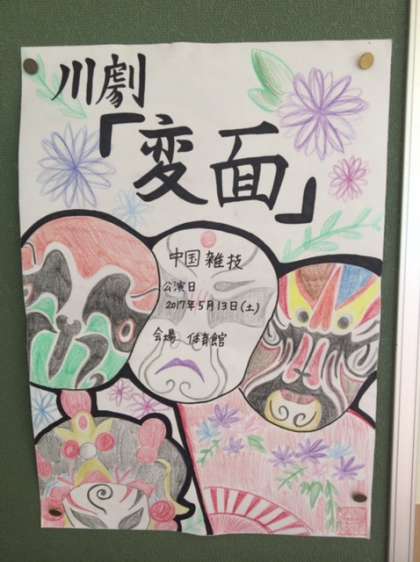 川劇
「変面」
中国雑技
公演日
2017年5月13日(土)
会場 体育館